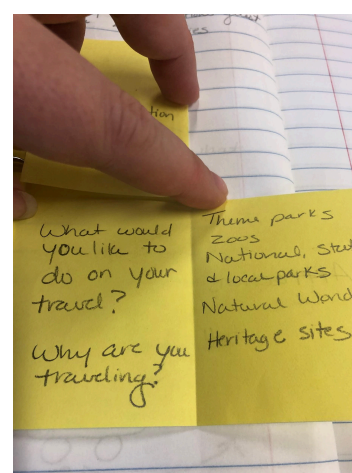 tion
What would
you like to
do on your
travel?
Why are you
traveling?
Theme parks
Zoos
National, Stat
& local parks
Natural Wond
Heritage sites